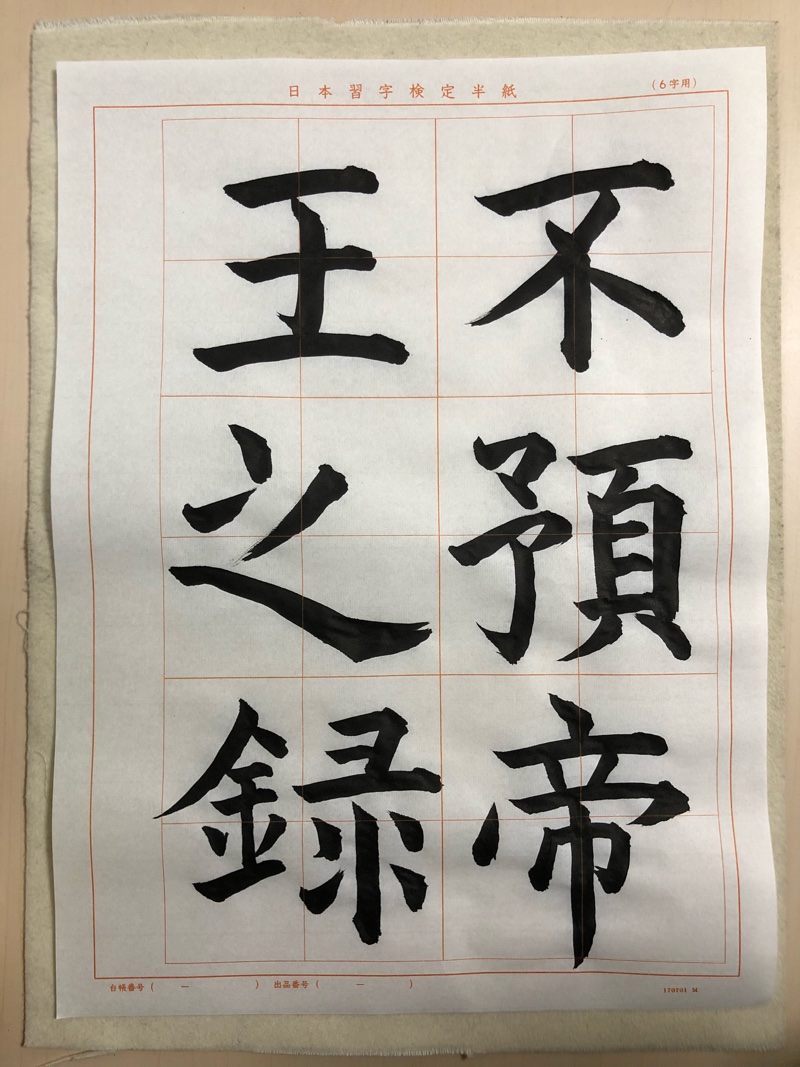 日本習字検定半紙
（6字用）
不預帝
王之録
台帳番号（　ー　）　出品番号（　ー　）
170701 M